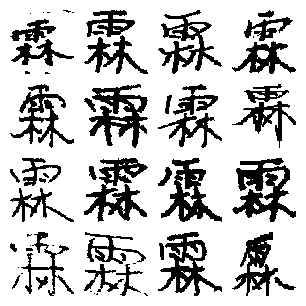 霖霖霖霖
霖霖霖霖
霖霖霖霖
霖霖霖霖